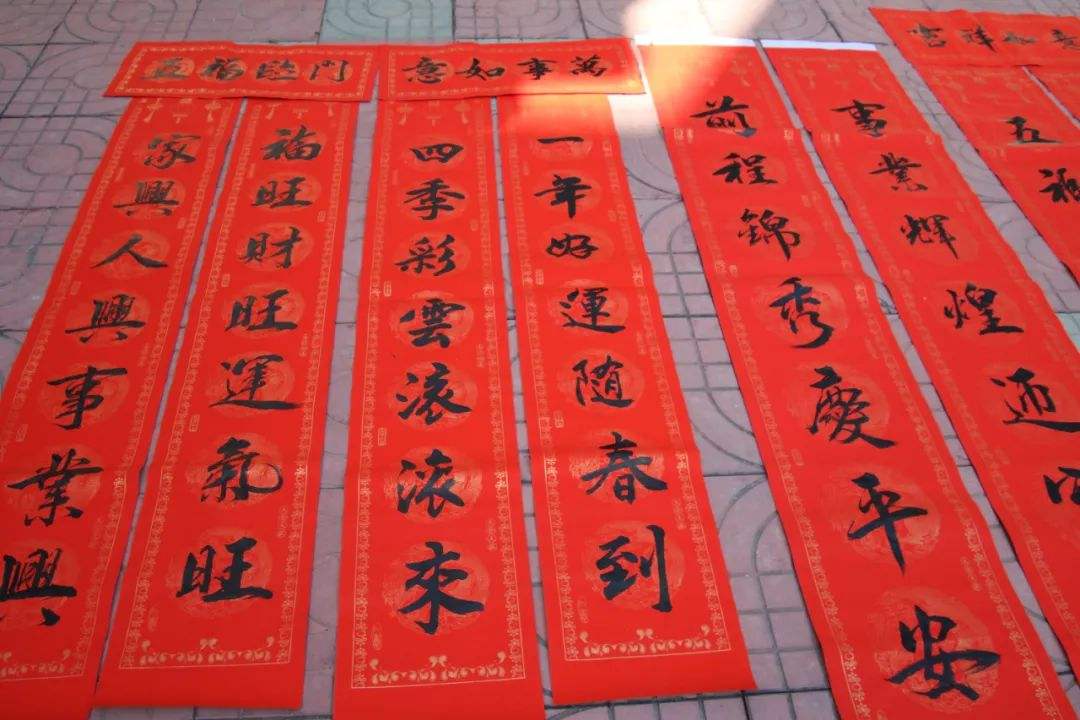 五福臨門
家興人興事業興
福旺財旺運氣旺
萬事如意
四季彩雲滚滚來
一年好運随春到
前程錦秀慶平安
事業輝煌迎四
吉祥如意
五福